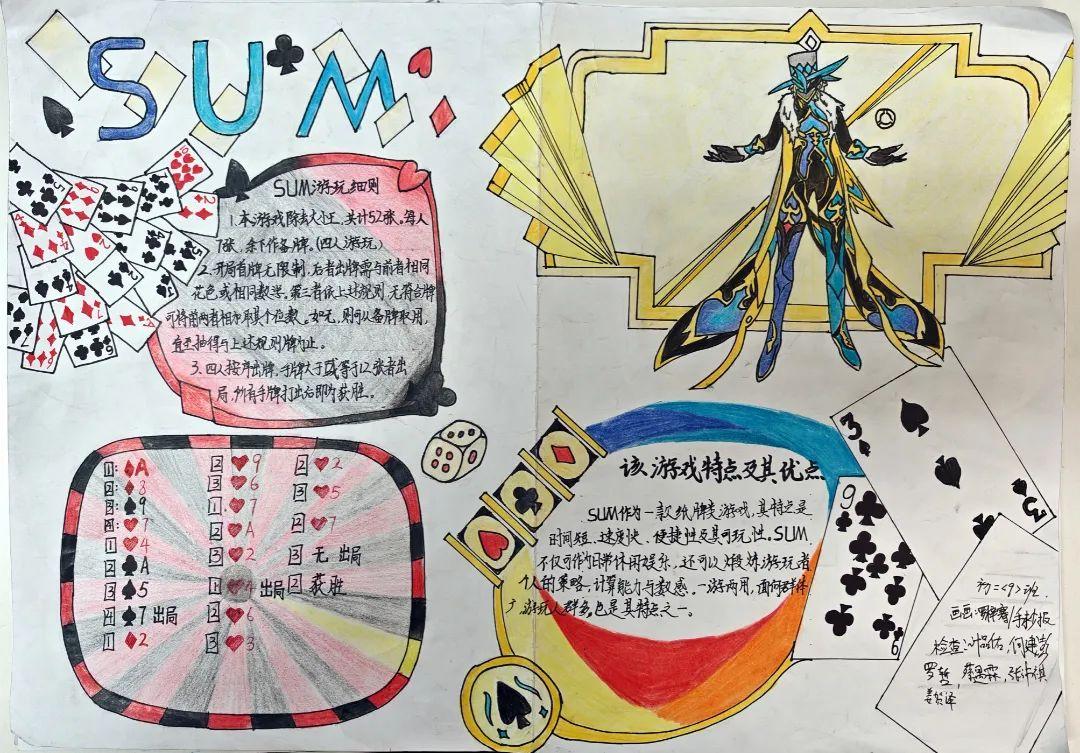 SUM
SUM游玩细则
1.本游戏除去大小王,共计52张。每人
7张,余下作备牌,(四人游玩)
2.开局首牌无限制,后者出牌需与前者相同
花色或相同数送,第三者依上述规则,无符合牌
可将前两者相加取其个位数。如无,则可从备牌取用,
直至抽得与上述规则牌为止。
3.四人按序出牌,手牌大于或等于12张者出
局,所有手牌打出后即为获胜。
1:♦A
2:♦3
3:♠9
4:♥7
1:♥4
2:♣A
3:♠5
4:♠7出局
1:♦2
2 ♥9
3 ♥6
1 ♥7
2 ♥A
3 ♥2
1 ♥4出局
2 ♥6
3 ♥3
2 ♥2
3 ♥5
2 ♥7
3 无 出局
2 获胜
该游戏特点及其优点
SUM作为一款纸牌类游戏,其特点是
时间短,速度快、便捷性及其可玩性,SUM
不仅可作为日常休闲娱乐,还可以锻炼游玩者
个人的策略,计算能力与数感。一游两用,面向群体
广,游玩人群多,也是其特点之一。
3
3
9
9
初二<9>班
画画:
/手抄报
检查:
罗哲